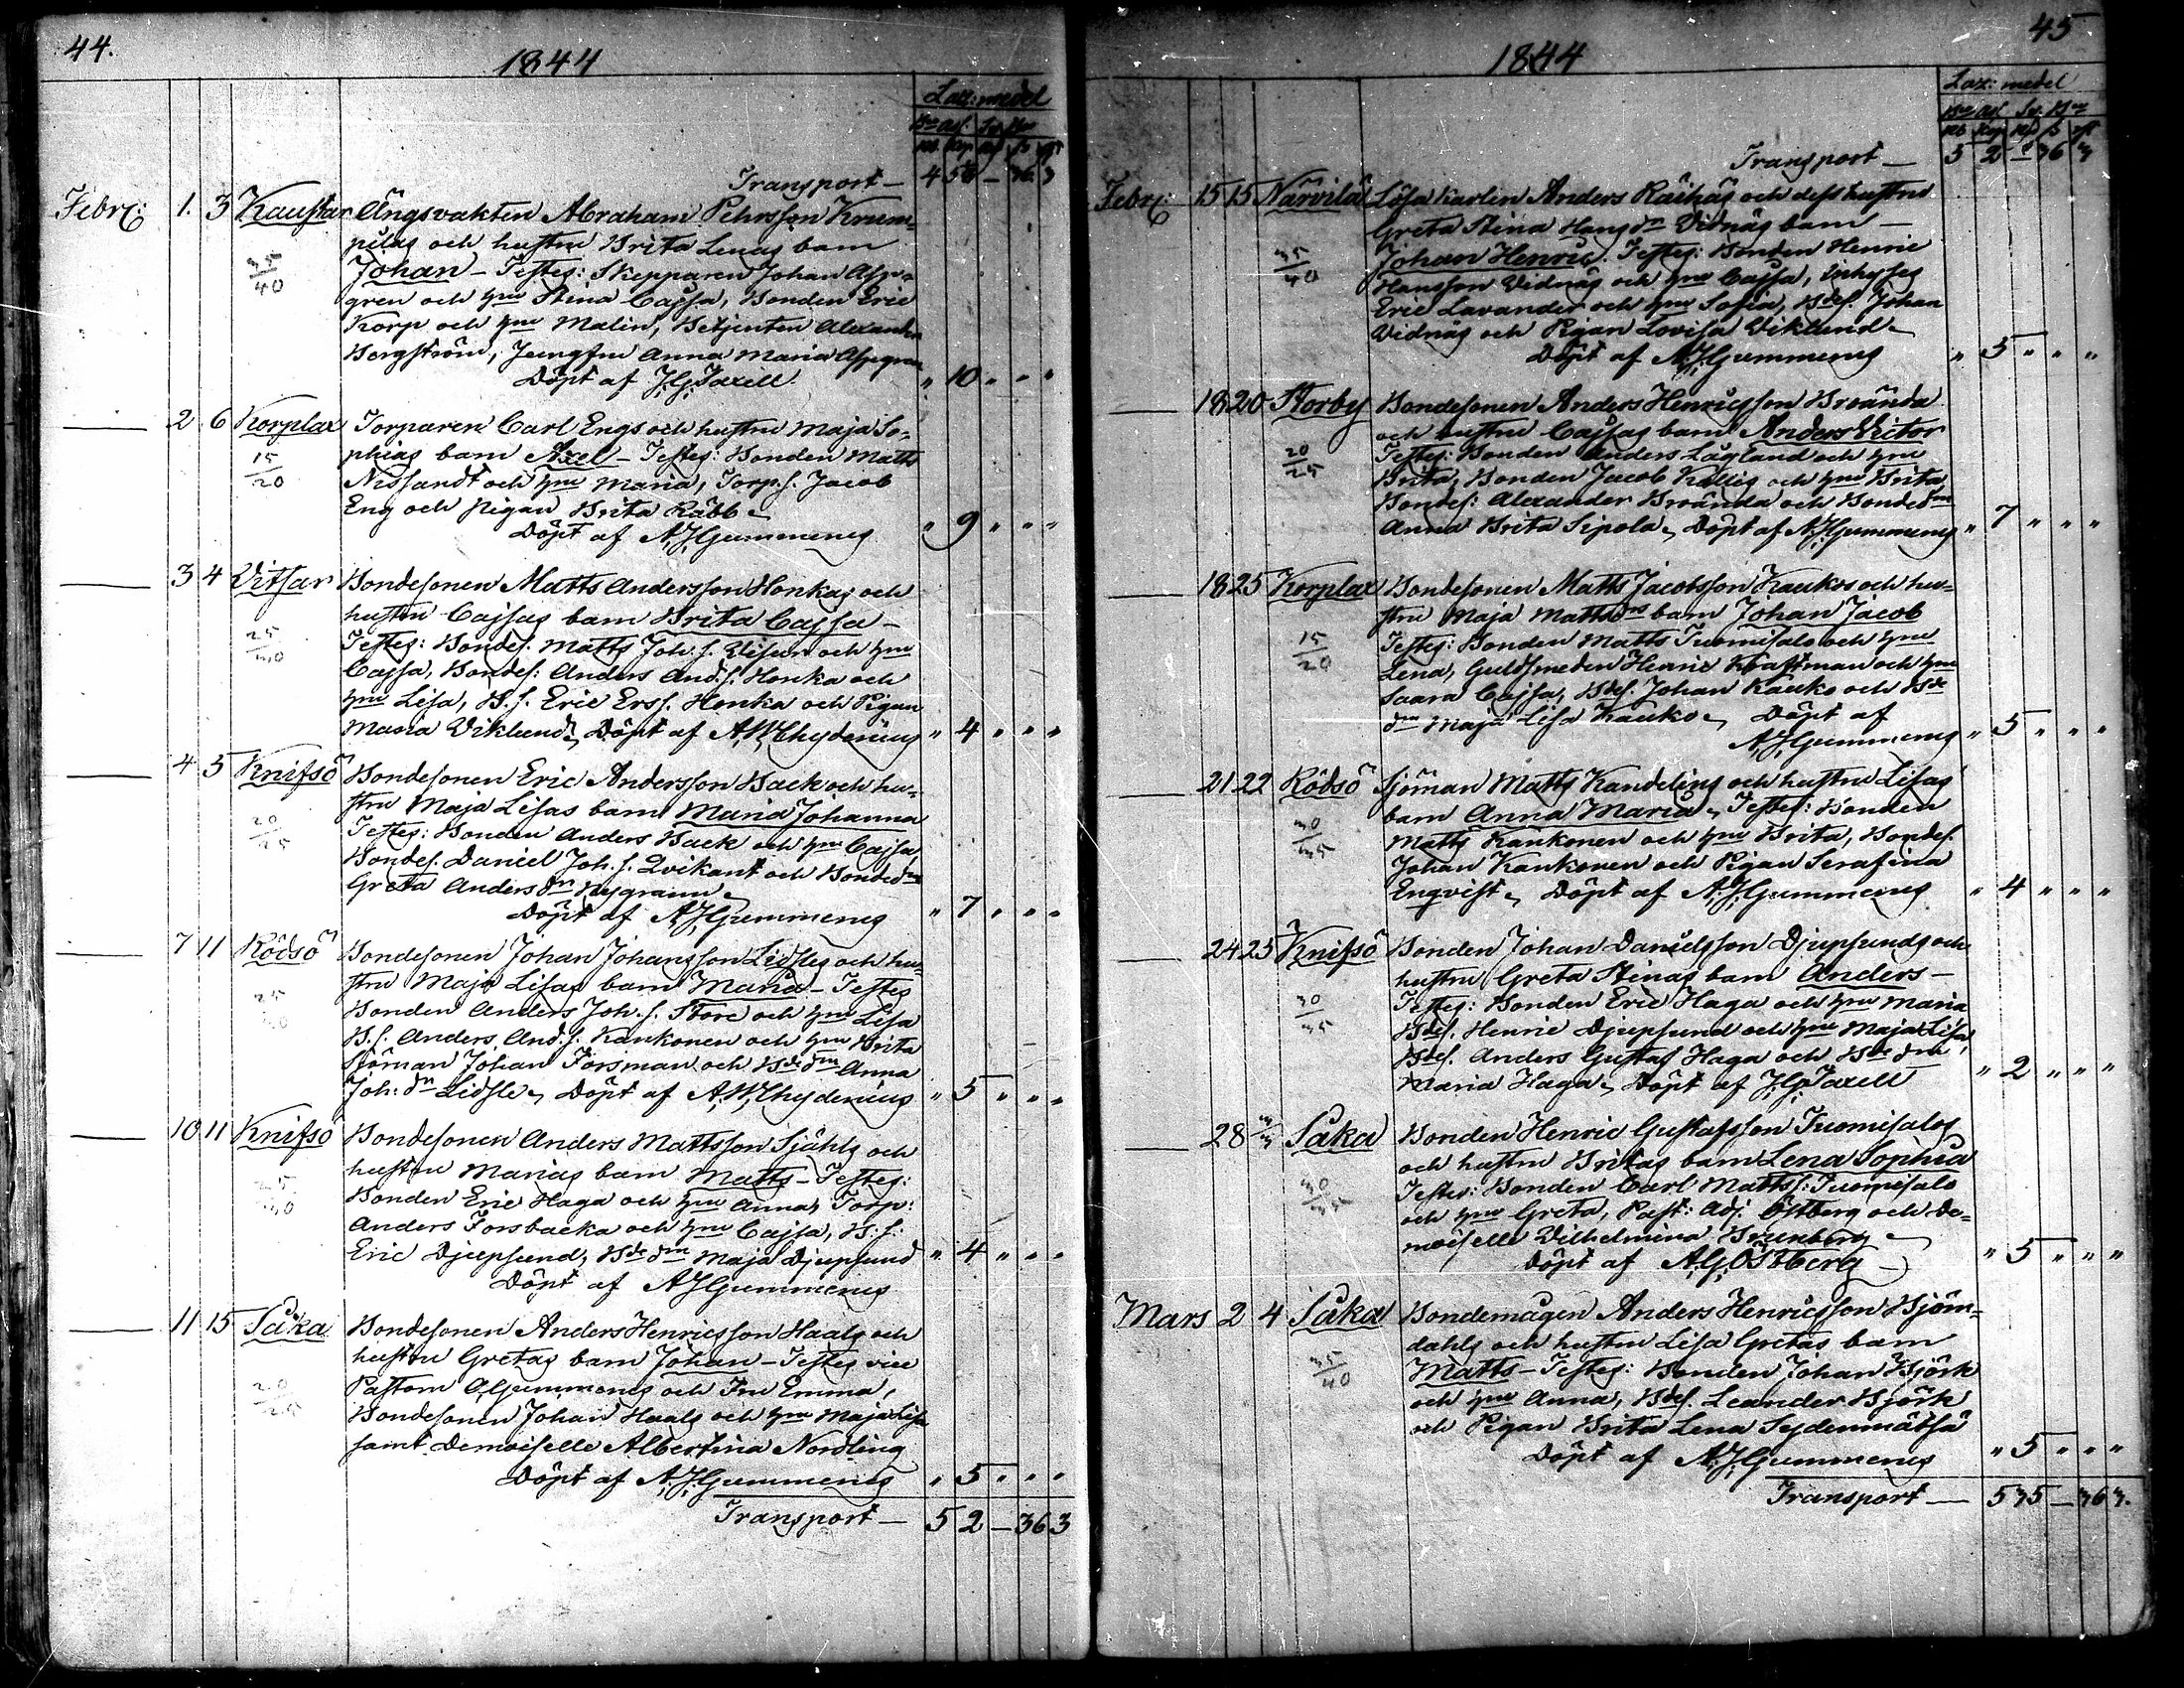 44.
1844
Laz: medel
Bco Ass. Sv. Bco
Transport — 4 58 — 36. 3
Febr: 1. 3 Kaustar Ängsvakten Abraham Pehrsson Krum-
pilas och hustru Brita Lenas barn
35/40
Johan – Testes: Skepparen Johan Asp-
gren och hru Stina Cajsa, Bonden Eric
Korp och hru Malin, Betjenten Alexander
Bergström, Jungfru Anna Maria Aspegren
Döpt af J.G. Taxell. " 10 " " "
2 6 Korplax Torparen Carl Engs och hustru Maja So-
15/20
phias barn Axel – Testes: Bonden Matts
Nissandt och hru Maria, Torp.s. Jacob
Eng och Pigan Brita Rabb
Döpt af A.J. Gummerus " 9 " " "
3 4 Vitsar Bondesonen Matts Andersson Honkas och
hustru Cajsas barn Brita Cajsa –
25/30
Testes: Bondes. Matts Joh. s. Visur och hru
Cajsa, Bondes: Anders And.s. Honka och
hru Lisa, B.s. Eric Ers s. Honka och Pigan
Maria Viklund, Döpt af A.W. Chydenius " 4 " " "
4 5 Knifsö Bondesonen Eric Andersson Back och hu-
stru Maja Lisas barn Maria Johanna
20/25
Testes: Bonden Anders Back och hru Cajsa,
Bondes. Daniel Joh. s. Qvikant och Bondedn
Greta Anders dn Nygrann
Döpt af A.J. Gummerus " 7 " " "
7 11 Rödsö Bondesonen Johan Johansson Lidsles och hu-
stru Maja Lisas barn Maria – Testes
25/30
Bonden Anders Joh. s. Store och hru Lisa
B.s. Anders And.s. Kankonen och hru Brita
Sjöman Johan Forsman och Bde dn Anna
Joh: dn Lidsle, Döpt af A.W. Chydenius " 5 " " "
10 11 Knifsö Bondesonen Anders Mattsson Sjåhls och
hustru Marias barn Matts – Testes:
25/30
Bonden Eric Haga och hru Anna, Torp:
Anders Forsbacka och hru Cajsa, B:s:
Eric Djupsund, Bde dn Maja Djupsund " 4 " " "
Döpt af A.J. Gummerus
11 15 Såka Bondesonen Anders Henricsson Haals och
hustru Gretas barn Johan – Testes vice
20/25
Pastorn A. Gummerus och Fru Emma,
Bondesonen Johan Haals och hru Maja Lisa
samt Demoiselle Albertina Nordling
Döpt af A.J. Gummerus " 5 " " "
Transport — 5 2 — 36 3
45
1844
Laz: medel
Bco Ass. Sv. Bco
Transport — 5 2 — 36 3
Febr: 15 15 Närvilä Lösa karlen Anders Räihäs och dess hustru
Greta Stina Hans dn Vidnäs barn –
35/40
Johan Henric. Testes: Bonden Henric
Hansson Vidnäs och hru Cajsa, Inhyses
Eric Lavander och hru Sofia, Bdes. Johan
Vidnäs och Pigan Lovisa Viklund
Döpt af A.J. Gummerus " 5 " " "
18 20 Storby Bondesonen Anders Henricsson Broända
och hustru Cajsas barn Anders Victor
20/25
Testes: Bonden Anders Lågland och hru
Brita, Bonden Jacob Källis och hru Brita
Bondes: Alexander Broända och Bondedn
Anna Brita Sipola, Döpt af A.J. Gummerus " 7 " " "
18 25 Korplax Bondesonen Matts Jacobsson Kaukos och hu-
stru Maja Matts dns barn Johan Jacob
15/20
Testes: Bonden Matts Tuomisalo och hru
Lena, Guldsmeden Henric Kraftman och hru
Saara Cajsa, Bdes. Johan Kauko och Bde
dn Maja Lisa Kauko, Döpt af
A.J. Gummerus " 5 " " "
21 22 Rödsö Sjöman Matts Kandelins och hustru Lisas
barn Anna Maria, Testes: Bonden
30/35
Matts Kankonen och hru Brita, Bondes.
Johan Kankonen och Pigan Serafina
Engvist, Döpt af A.J. Gummerus " 4 " " "
24 25 Knifsö Bonden Johan Danielsson Djupsunds och
hustru Greta Stinas barn Anders –
30/35
Testes: Bonden Eric Haga och hru Maria
Bdes. Henric Djupsund och hru Maja Lisa,
Bdes. Anders Gustaf Haga och Bde dn
Maria Haga, Döpt af J.G. Taxell " 2 " " "
28 3/3 Såka Bonden Henric Gustafsson Tuomisalos
och hustru Britas barn Lena Sophia
30/35
Testes: Bonden Carl Matts s: Tuomisalo
och hru Greta, Past: Adj. Östberg och De-
moiselle Vilhelmina Brunberg
Döpt af A.G. Östberg " 5 " " "
Mars 2 4 Såka Bondemågen Anders Henricsson Björn-
dahls och hustru Lisa Gretas barn
35/40
Matts – Testes: Bonden Johan Björk
och hru Anna, Bdes. Leander Björk
och Pigan Brita Lena Sydenmätsä
Döpt af A.J. Gummerus " 5 " " "
Transport — 5 35 — 36 3.